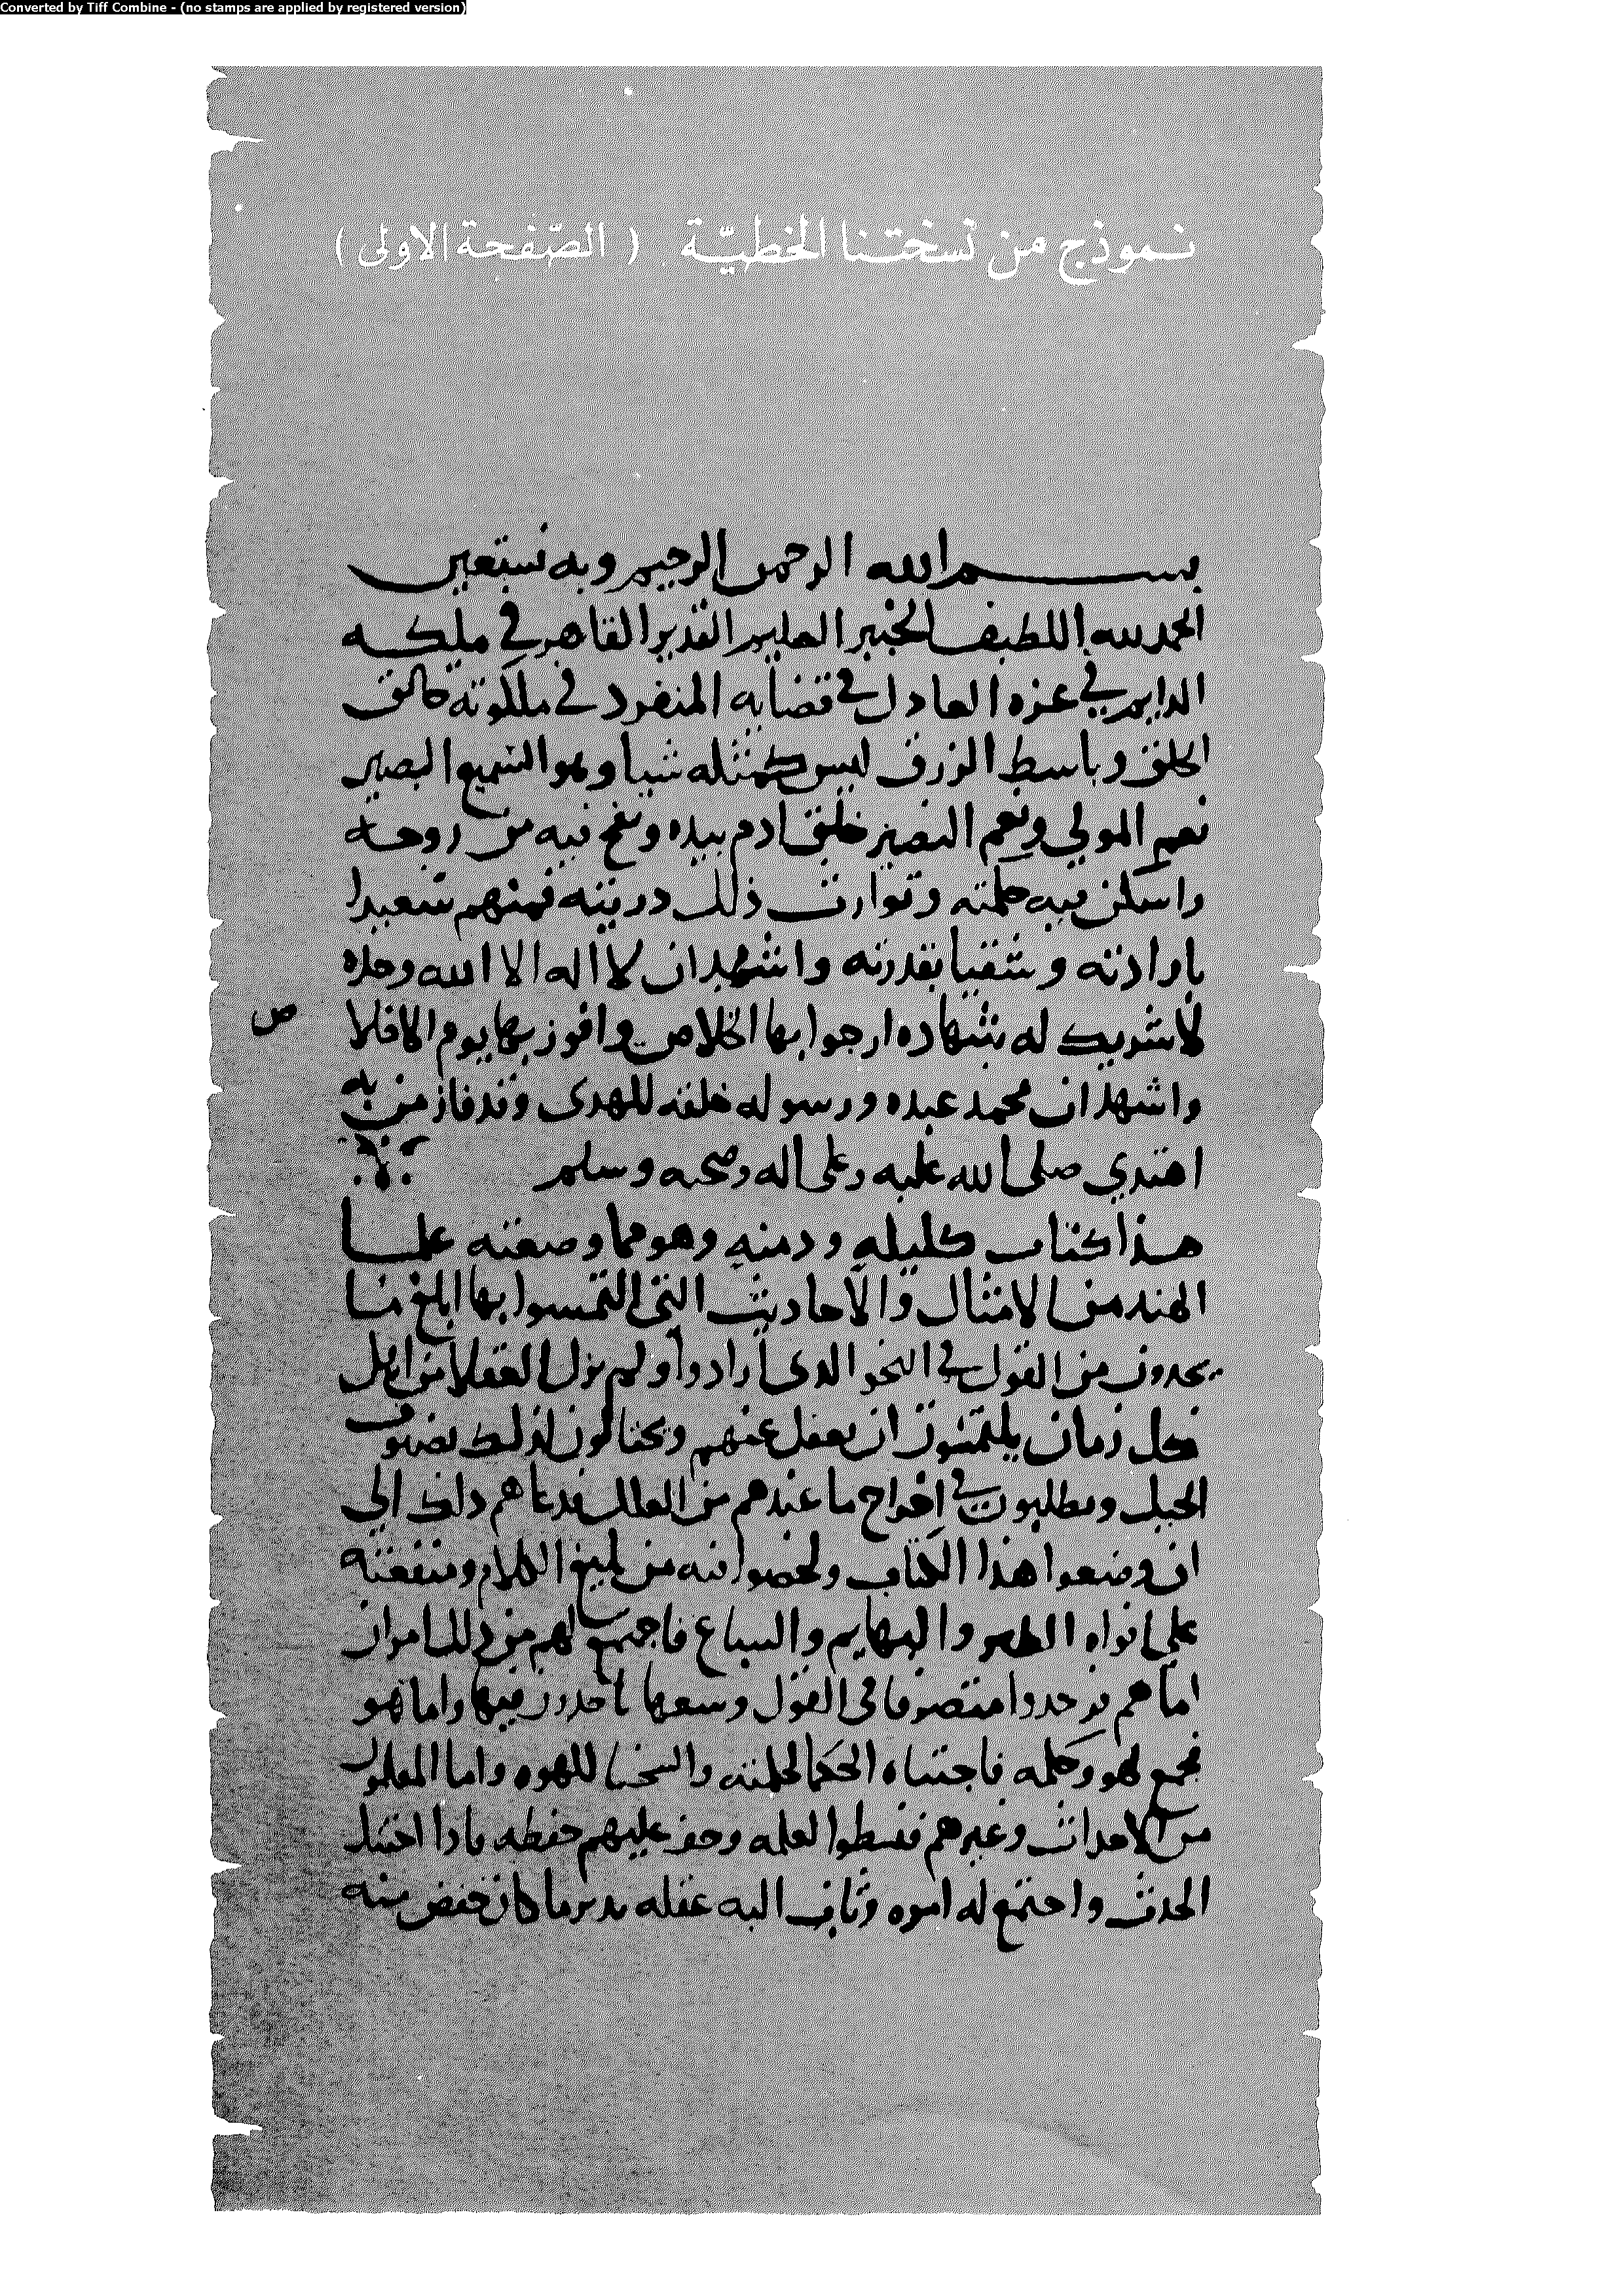 Converted by Tiff Combine - (no stamps are applied by registered version)
نموذج من نسختنا الخطيّة ( الصّفحة الاولى )
بسم الله الرحمن الرحيم وبه نستعين
الحمد لله اللطيف الخبير العليم القدير القاهر في ملكه
الدايم في عزه العادل في قضايه المنفرد في ملكوته خالق
الخلق وباسط الرزق ليس كمثله شيا وهو السميع البصير
نعم المولي ونعم النصير خلق ادم بيده ونفخ فيه من روحه
واسكن فيه حكمته وتوارث ذلك دريته فمنهم سعيدا
بارادته وشقيا بقدرته واشهد ان لا اله الا الله وحده
لا شريك له شهاده ارجوا بها الخلاص وافوز بها يوم لا خلا
ص
واشهد ان محمد عبده ورسوله خلقه للهدى وقد فاز من به
اهتدي صلى الله عليه وعلى اله وصحبه وسلم
هذا كتاب كليله ودمنه وهو مما وضعته علما
الهند من الامثال والاحاديث التي التمسوا بها ابلغ ما
يجدون من القول في النحو الدى ارادوا ولم يزل العقلا من اهل
كل زمان يلتمسون ان يعقل عنهم ويحتالون لذلك بصنوف
الحيل ويطلبون في اخراج ما عندهم من العلل فدعاهم دلك الي
ان وضعوا هذا الكتاب ولخصوا فيه من بليغ الكلام ومتقنه
على افواه الطير والبهايم والسباع فاجتمع لهم من ذلك امران
اما هم فوجدوا متصرفا في القول وسعبا ياخدون فيها واما هو
فجمع لهو وحكمه فاجتباه الحكما لحكمته والسخفا للهوه واما المتعلمون
من الاحداث وغيرهم فنشطوا لعلمه وخف عليهم حفظه فادا احتنك
الحدث واجتمع له اموه وثاب اليه عقله تدبر ما كان حفظ منه